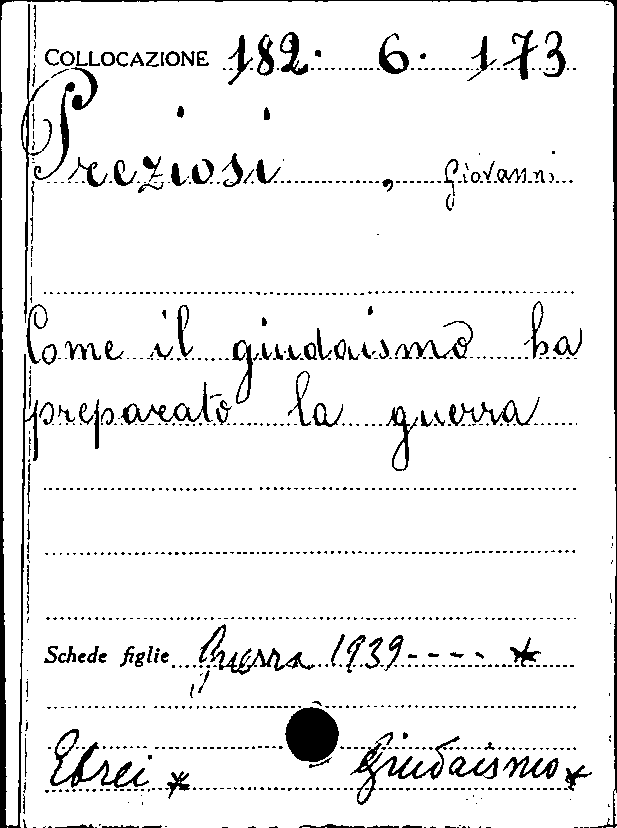 COLLOCAZIONE 182. 6. 173
Preziosi, Giovanni
Come il giudaismo ha
preparato la guerra
Schede figlie Guerra 1939---- *
Ebrei * Giudaismo *